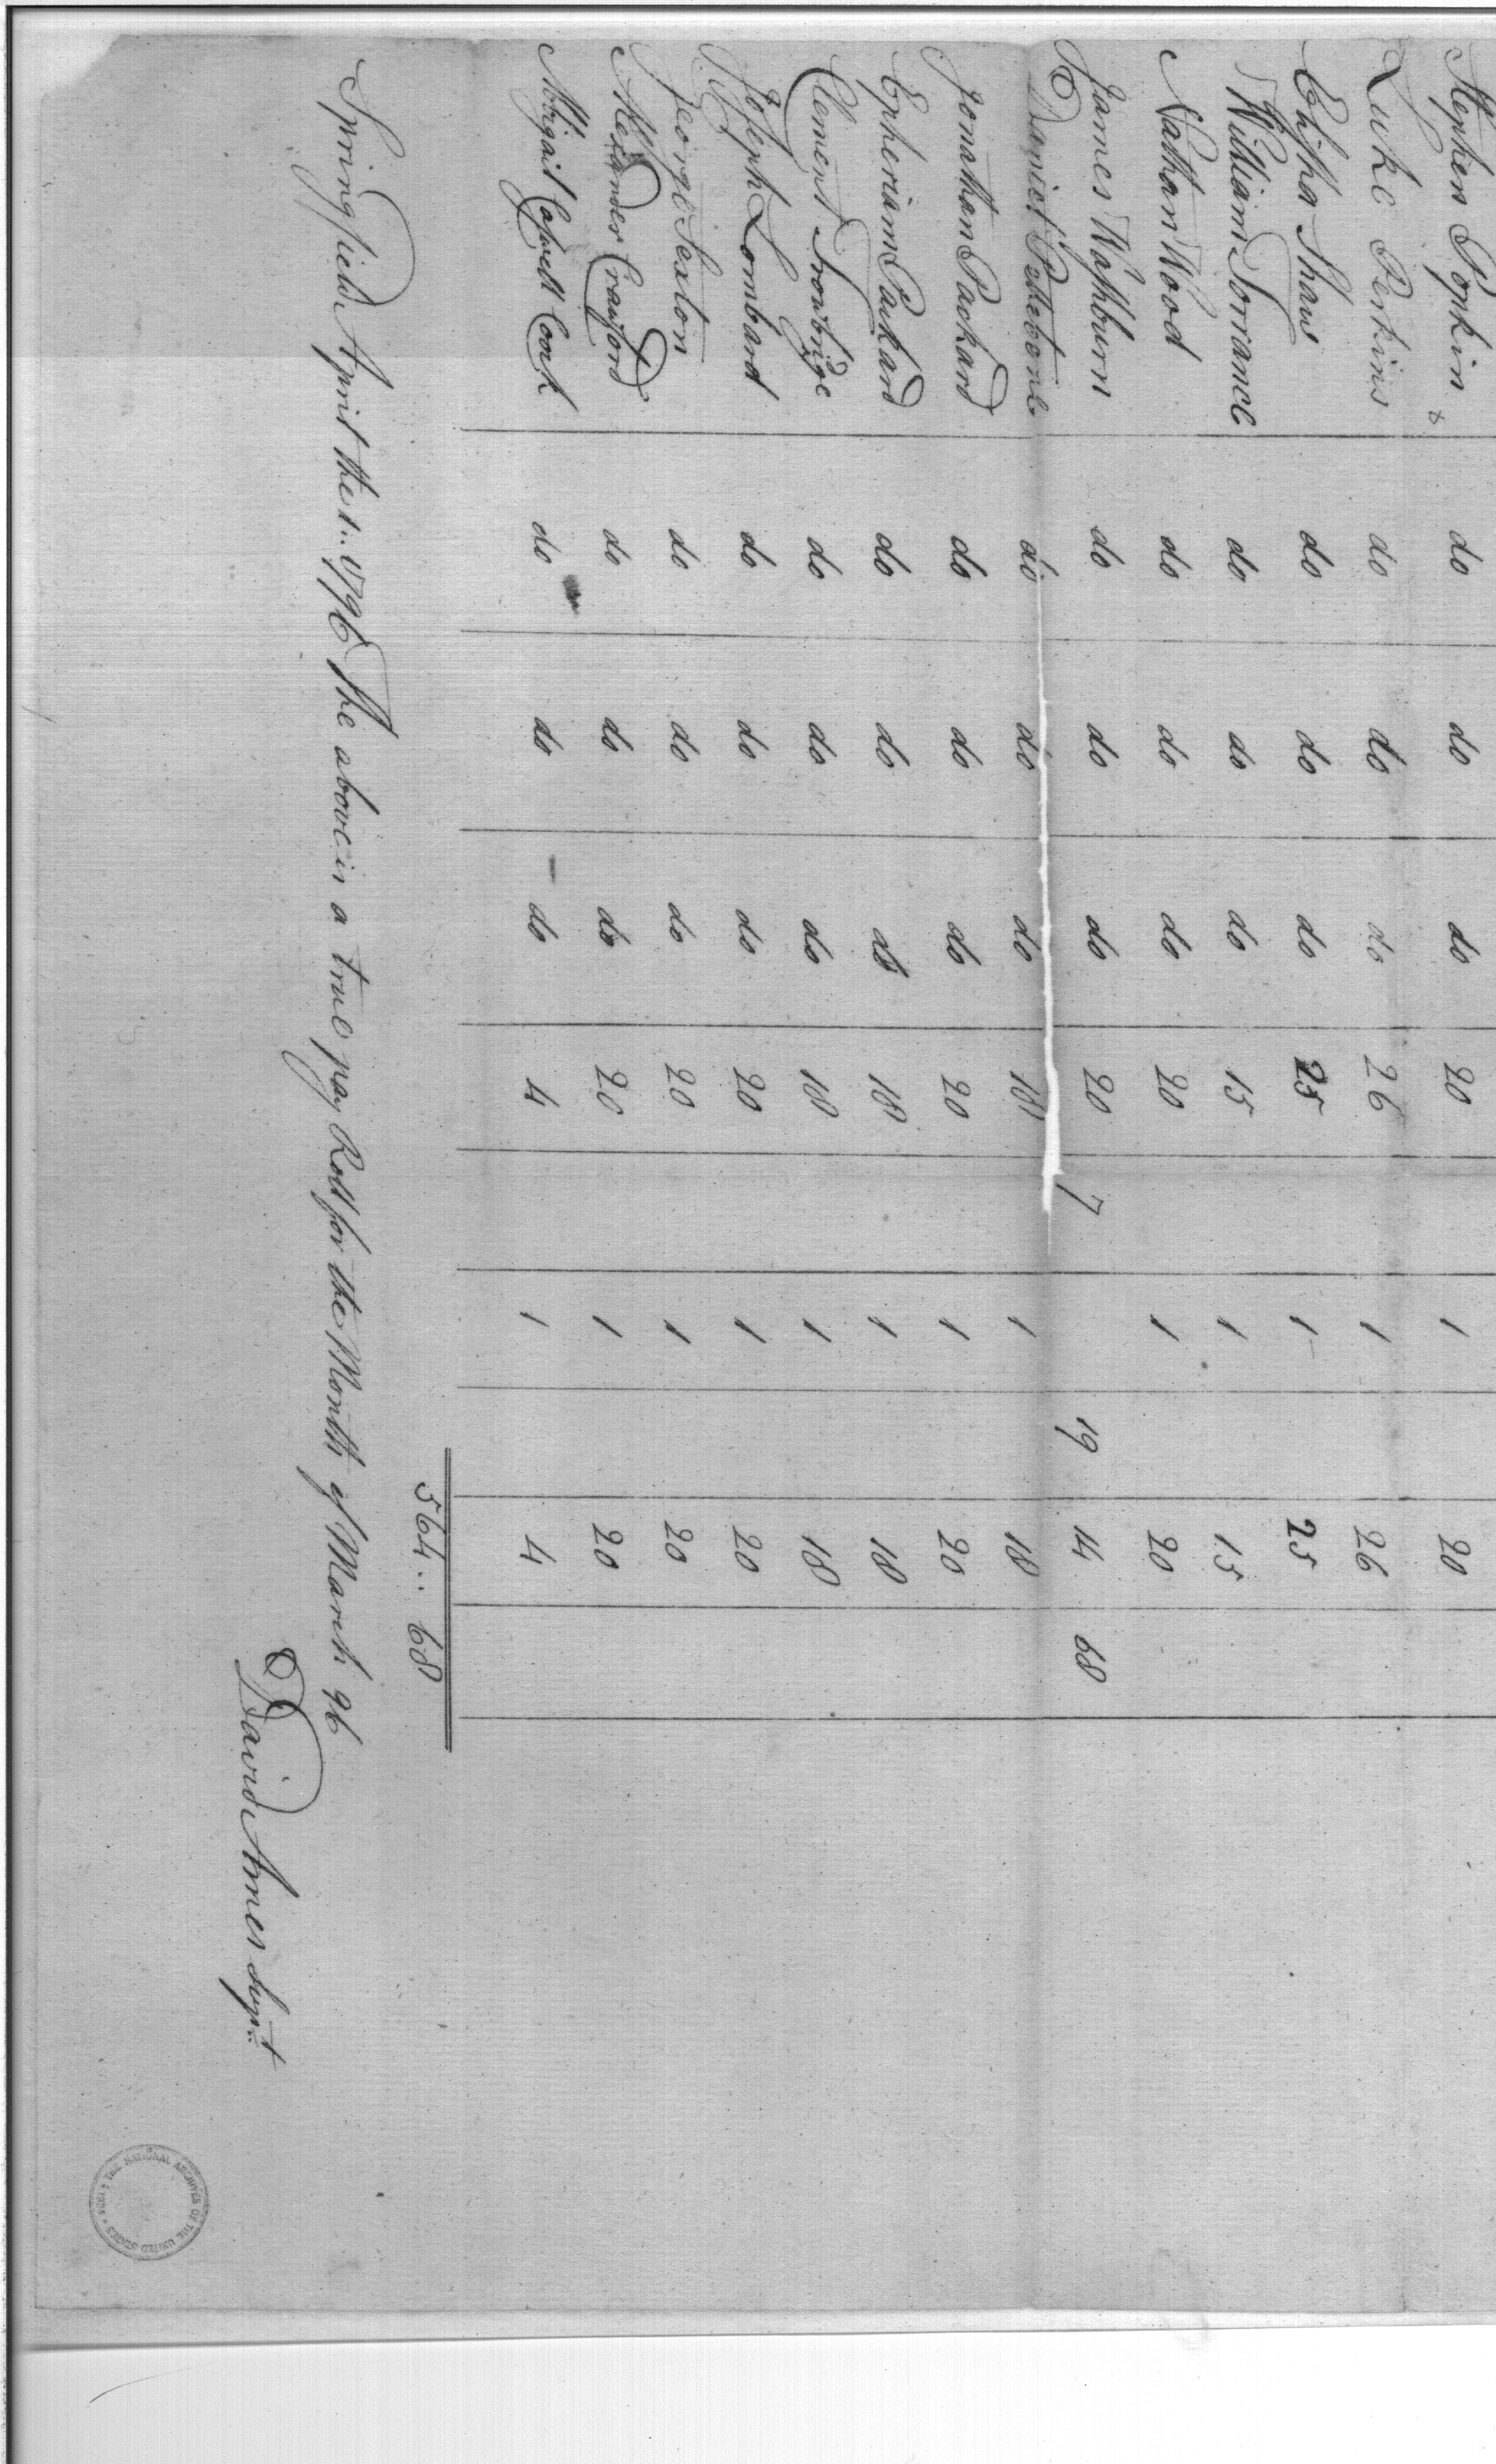 Stephen Popkin do do do 20 1 20
Luke Perkins do do do 26 1 26
Elisha Shaw do do do 25 1 25
William Torrance do do do 15 1 15
Nathan Wood do do do 20 1 20
James Washburn do do do 20 7 19 14 68
Daniel Pettebone do do do 18 1 18
Jonathan Packard do do do 20 1 20
Epheriam Packard do do do 18 1 18
Clement Trowbrige do do do 18 1 18
Joseph Lombard do do do 20 1 20
George Sexton do do do 20 1 20
Alexander Crawford do do do 20 1 20
Abigail Cook do do do 4 1 4
564.. 68
Springfield April the 1.. 1796 The above is a true pay Roll for the Month of March 96
David Ames Supt
THE NATIONAL ARCHIVES OF THE UNITED STATES 1934